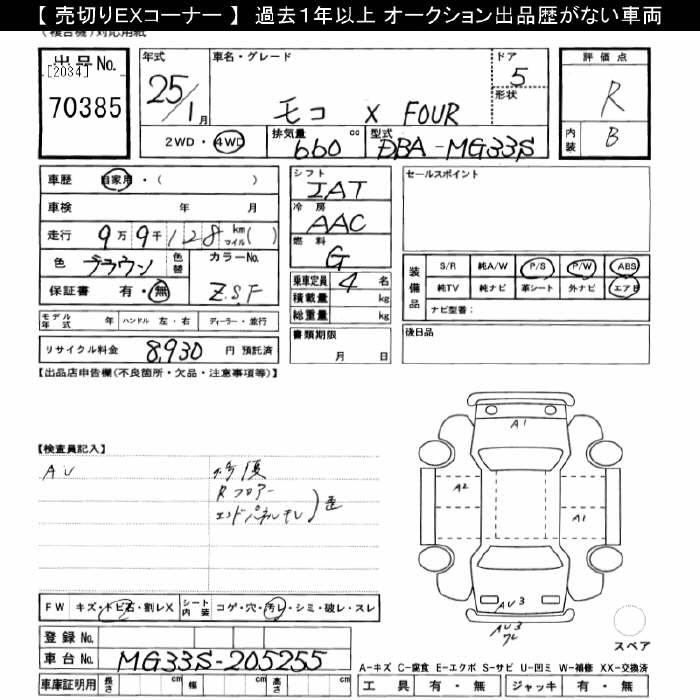 【 売切りEXコーナー 】 過去１年以上 オークション出品歴がない車両
（複合機）対応用紙
出品No.
[2034]
70385
年式
25/1月
車名・グレード
モコ X FOUR
ドア
5
形状
2WD・4WD
排気量
660 cc
型式
DBA-MG33S
評価点
R
内装
B
車歴 自家用・（ ）
車検 年 月
走行 9万9千128 km マイル( )
色 ブラウン 色替
カラーNo.
Z.S.F
保証書 有・無
シフト
IAT
冷房
AAC
燃料
G
乗車定員 4 名
積載量 kg
総重量 kg
書類期限
月 日
セールスポイント
装備品
S/R 純A/W P/S P/W ABS
純TV 純ナビ 革シート 外ナビ エアB
ナビ型番：
後日品
モデル年式 年 ハンドル 左・右 ディーラー・並行
リサイクル料金 8,930 円 預託済
【出品店申告欄(不良箇所・欠品・注意事項等)】
【検査員記入】
AU
修復
Rフロアー
エンドパネル
歪
A1
A2
A1
AU3
AU3
FW キズ・トビ石・割レX
シート内装 コゲ・穴・汚レ・シミ・破レ・スレ
スペア
登録 No.
車台 No. MG33S-205255
車庫証明用 長さ cm 幅 cm 高さ cm
A-キズ C-腐食 E-エクボ S-サビ U-凹ミ W-補修 XX-交換済
工具 有・無 ジャッキ 有・無